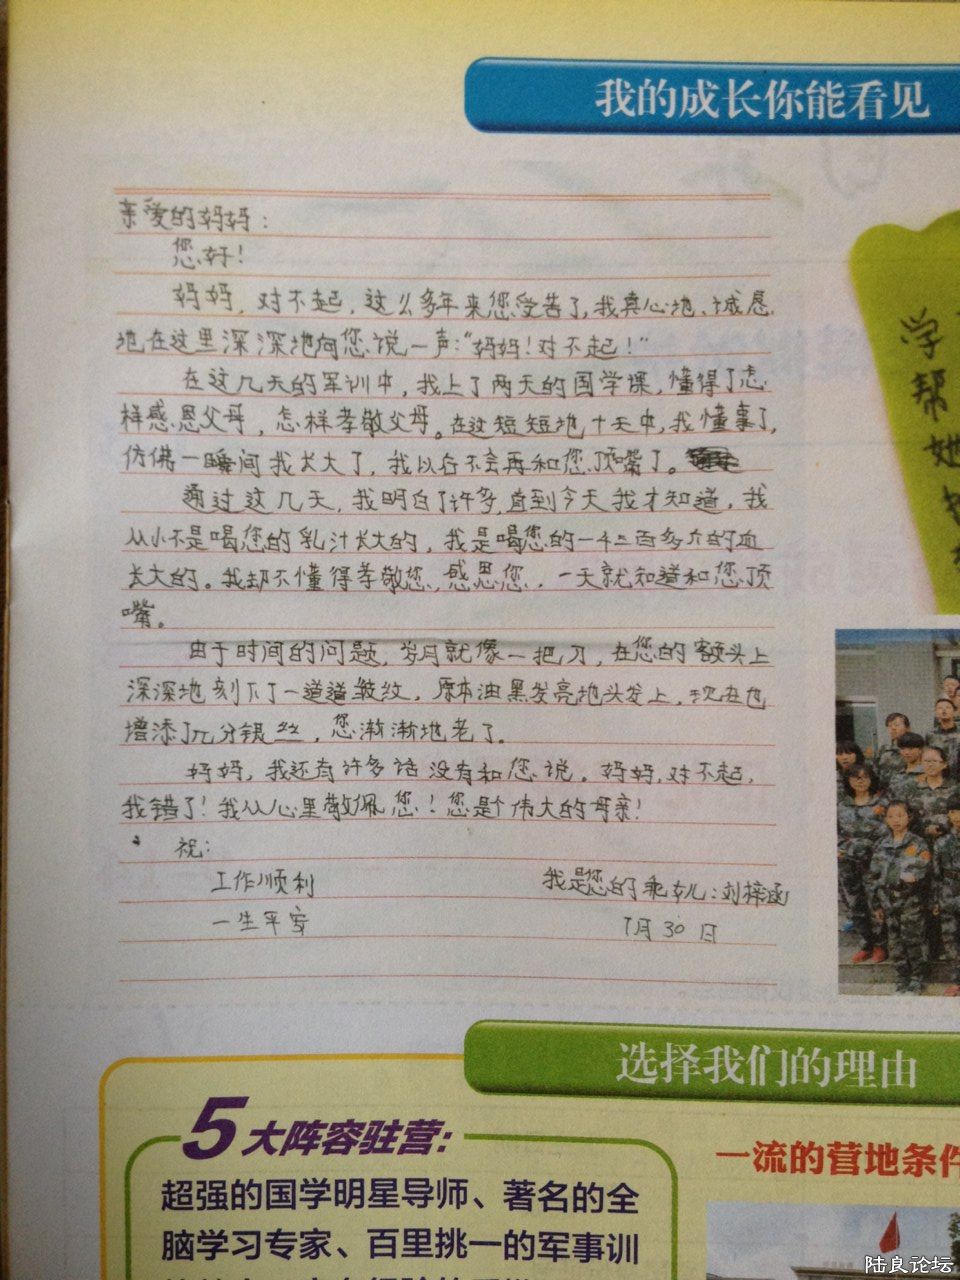 我的成长你能看见
亲爱的妈妈：
您好！
妈妈，对不起，这么多年来您受苦了，我真心地、诚恳
地在这里深深地向您说一声："妈妈！对不起！"
在这几天的军训中，我上了两天的国学课，懂得了怎
样感恩父母，怎样孝敬父母。在这短短地十天中，我懂事了，
仿佛一瞬间我长大了，我以后不会再和您顶嘴了。
通过这几天，我明白了许多，直到今天我才知道，我
从小不是喝您的乳汁长大的，我是喝您的一千二百多斤的血
长大的。我却不懂得孝敬您、感恩您，一天就知道和您顶
嘴。
由于时间的问题，岁月就像一把刀，在您的额头上
深深地刻下了一道道皱纹，原本油黑发亮地头发上，现在也
增添了几分银丝，您渐渐地老了。
妈妈，我还有许多话没有和您说。妈妈，对不起，
我错了！我从心里敬佩您！您是个伟大的母亲！
祝：
工作顺利
我是您的乖女儿：刘梓函
一生平安
7月30日
学
帮
她
选择我们的理由
5大阵容驻营：
超强的国学明星导师、著名的全
脑学习专家、百里挑一的军事训
一流的营地条件
陆良论坛